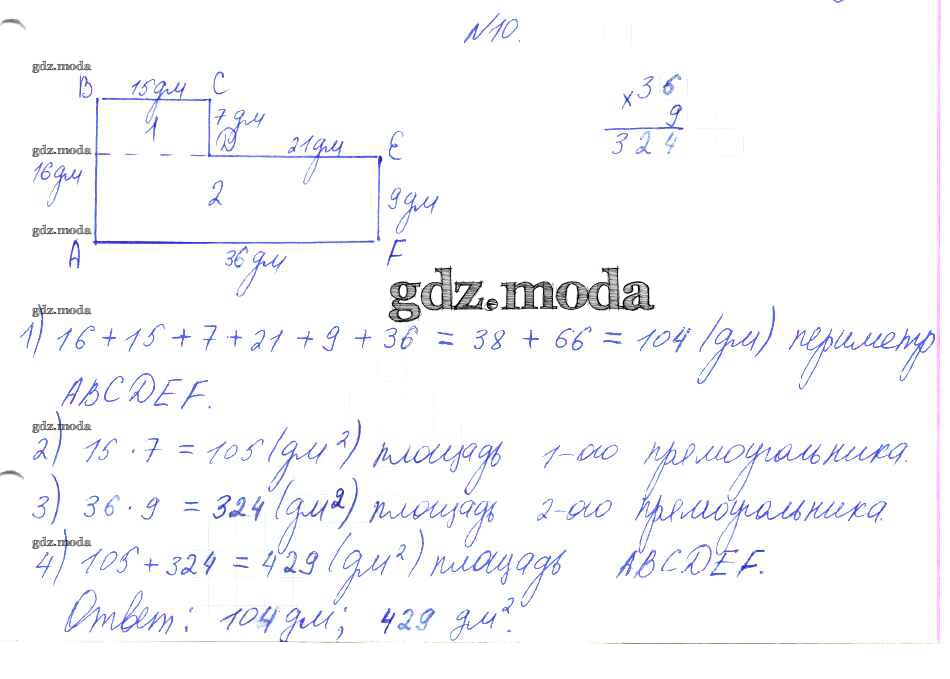 №10.
gdz.moda
B 15дм C
7дм
1
D 21дм E
gdz.moda
16дм
2
9дм
gdz.moda
A 36дм F
× 36
9
324
gdz.moda
gdz.moda
1) 16 + 15 + 7 + 21 + 9 + 36 = 38 + 66 = 104 (дм) периметр
ABCDEF.
gdz.moda
2) 15 · 7 = 105 (дм²) площадь 1-ого прямоугольника.
3) 36 · 9 = 324 (дм²) площадь 2-ого прямоугольника.
gdz.moda
4) 105 + 324 = 429 (дм²) площадь ABCDEF.
Ответ: 104дм; 429 дм².